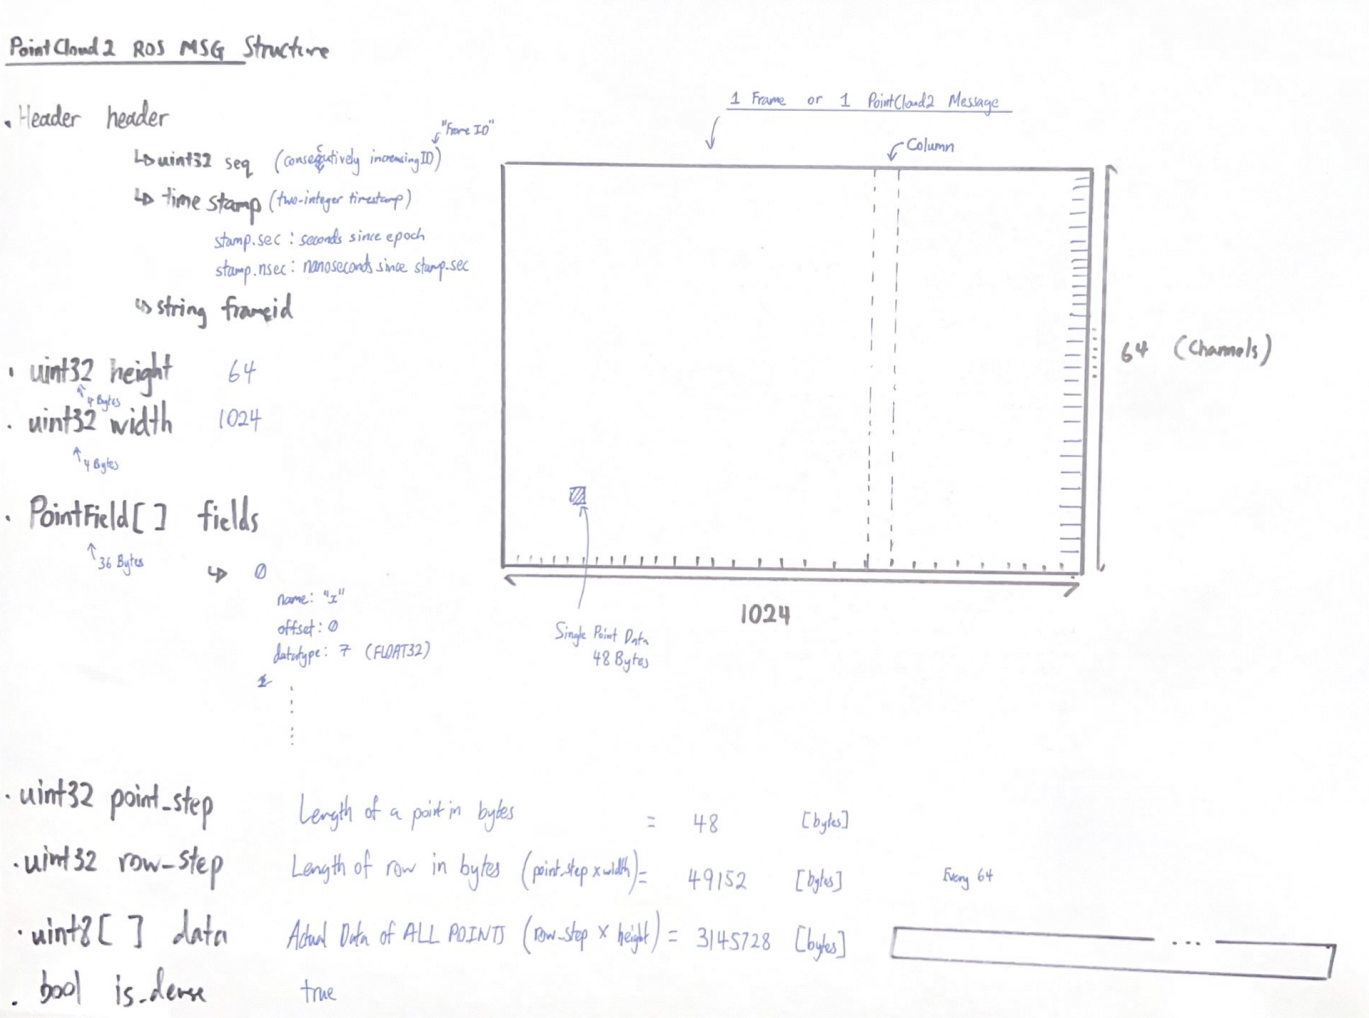 PointCloud2 ROS MSG Structure
. Header header
"Frame ID"
↳ uint32 seq (consecutively increasing ID)
↳ time stamp (two-integer timestamp)
stamp.sec : seconds since epoch
stamp.nsec : nanoseconds since stamp.sec
↳ string frameid
. uint32 height 64
4 Bytes
. uint32 width 1024
4 Bytes
. PointField[ ] fields
36 Bytes
↳ 0
name: "x"
offset: 0
datatype: 7 (FLOAT32)
1
1 Frame or 1 PointCloud2 Message
Column
64 (Channels)
1024
Single Point Data
48 Bytes
. uint32 point_step Length of a point in bytes = 48 [bytes]
. uint32 row_step Length of row in bytes (point_step x width) = 49152 [bytes] Every 64
. uint8[ ] data Actual Data of ALL POINTS (row_step x height) = 3145728 [bytes] ...
. bool is_dense true